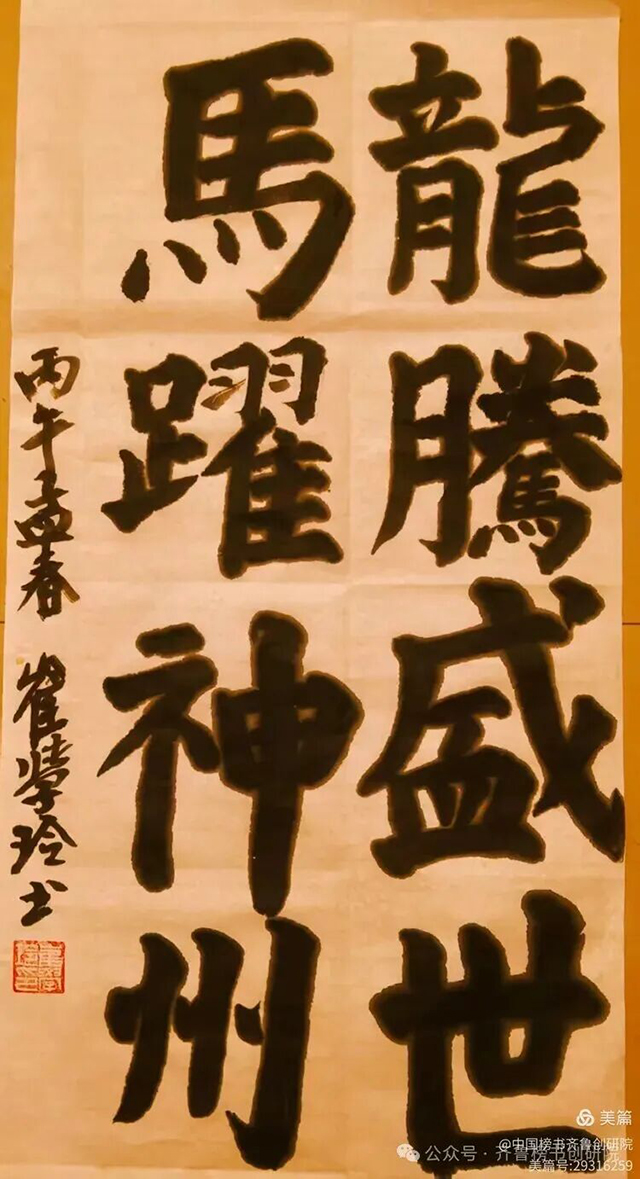 龍騰盛世
馬躍神州
丙午孟春 崔學玲书
美篇
@中国榜书齐鲁创研院
公众号·齐鲁榜书创研院
美篇号:29316259